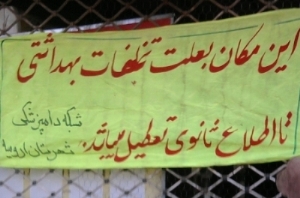 این مکان بعلت تخلفات بهداشتی
تا اطلاع ثانوی تعطیل میباشد.
شبکه دامپزشکی
شهرستان ارومیه